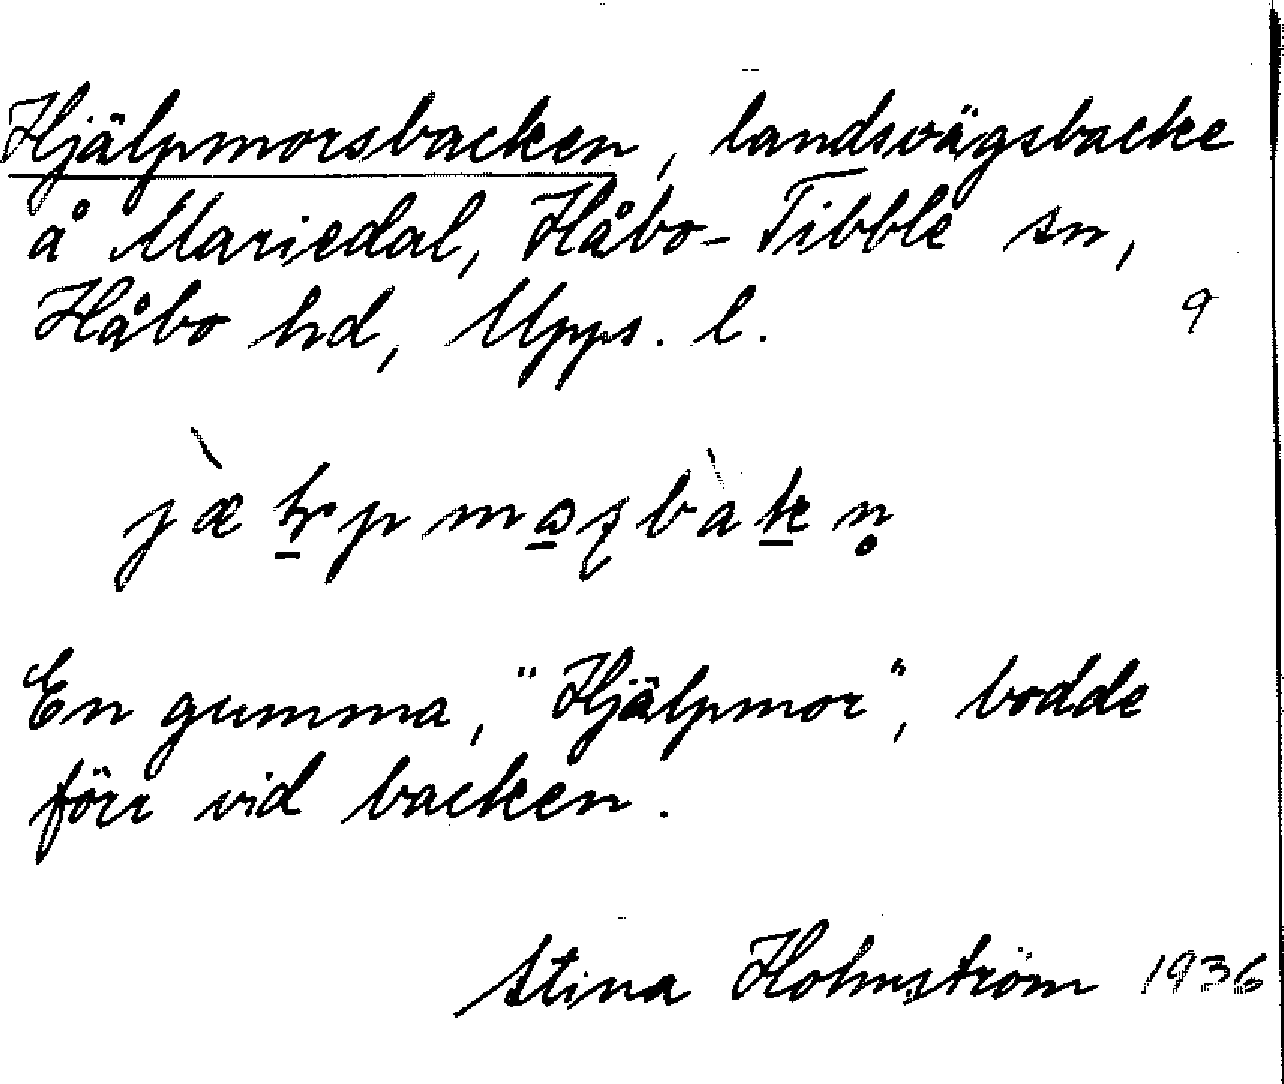 Hjälpmorsbacken, landsvägsbacke
å Mariedal, Håbo-Tibble sn,
Håbo hd, Upps. l. 9
En gumma, "Hjälpmor", bodde
förr vid backen.
Stina Holmström 1936